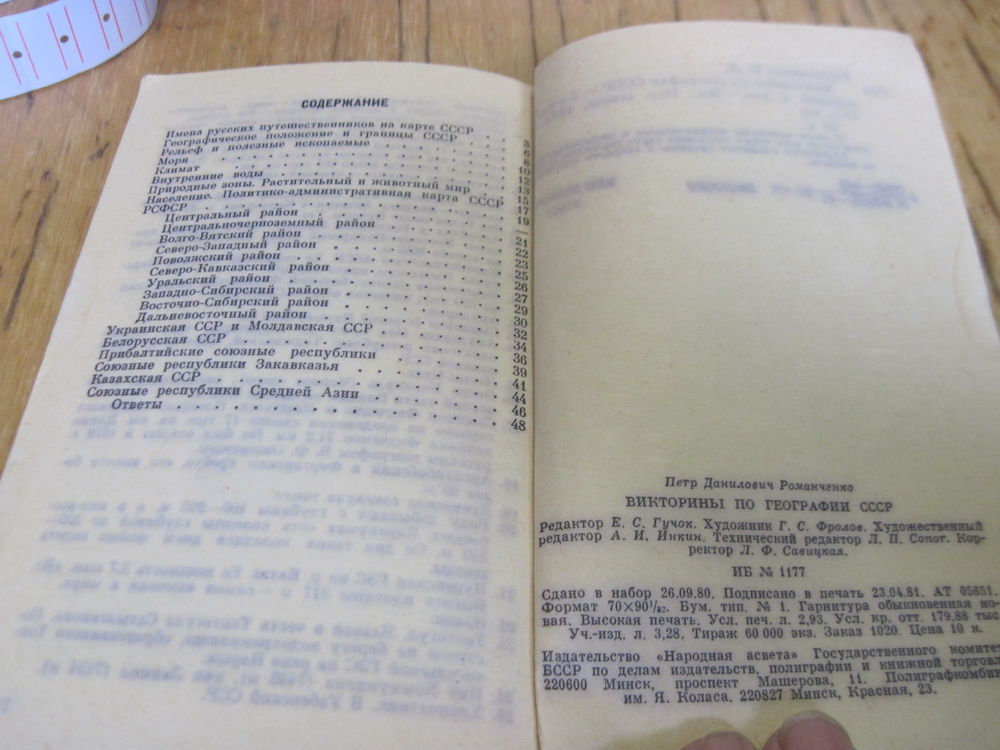 СОДЕРЖАНИЕ
Имена русских путешественников на карте СССР . . 3
Географическое положение и границы СССР . . . 6
Рельеф и полезные ископаемые . . . . . 8
Моря . . . . . . . . . . 10
Климат . . . . . . . . . . 12
Внутренние воды . . . . . . . . 13
Природные зоны. Растительный и животный мир . . 15
Население. Политико-административная карта СССР 17
РСФСР . . . . . . . . . . 19
Центральный район . . . . . . . —
Центральночерноземный район . . . . . 21
Волго-Вятский район . . . . . . . 22
Северо-Западный район . . . . . . 23
Поволжский район . . . . . . . 25
Северо-Кавказский район . . . . . . 26
Уральский район . . . . . . . 27
Западно-Сибирский район . . . . . . 29
Восточно-Сибирский район . . . . . . 30
Дальневосточный район . . . . . . 32
Украинская ССР и Молдавская ССР . . . . 34
Белорусская ССР . . . . . . . . 36
Прибалтийские союзные республики . . . . 39
Союзные республики Закавказья . . . . . 41
Казахская ССР . . . . . . . . 44
Союзные республики Средней Азии . . . . 46
Ответы . . . . . . . . . 48
Петр Данилович Романченко
ВИКТОРИНЫ ПО ГЕОГРАФИИ СССР
Редактор Е. С. Гучок. Художник Г. С. Фролов. Художественный
редактор А. И. Инкин. Технический редактор Л. П. Сопот. Кор-
ректор Л. Ф. Савицкая.
ИБ № 1177
Сдано в набор 26.09.80. Подписано в печать 23.04.81. АТ 05651.
Формат 70×90¹/₃₂. Бум. тип. № 1. Гарнитура обыкновенная но-
вая. Высокая печать. Усл. печ. л. 2,93. Усл. кр. отт. 179,88 тыс.
Уч.-изд. л. 3,28. Тираж 60 000 экз. Заказ 1020. Цена 10 к.
Издательство «Народная асвета» Государственного комитет
БССР по делам издательств, полиграфии и книжной торговл
220600 Минск, проспект Машерова, 11. Полиграфкомбин
им. Я. Коласа, 220827 Минск, Красная, 23.